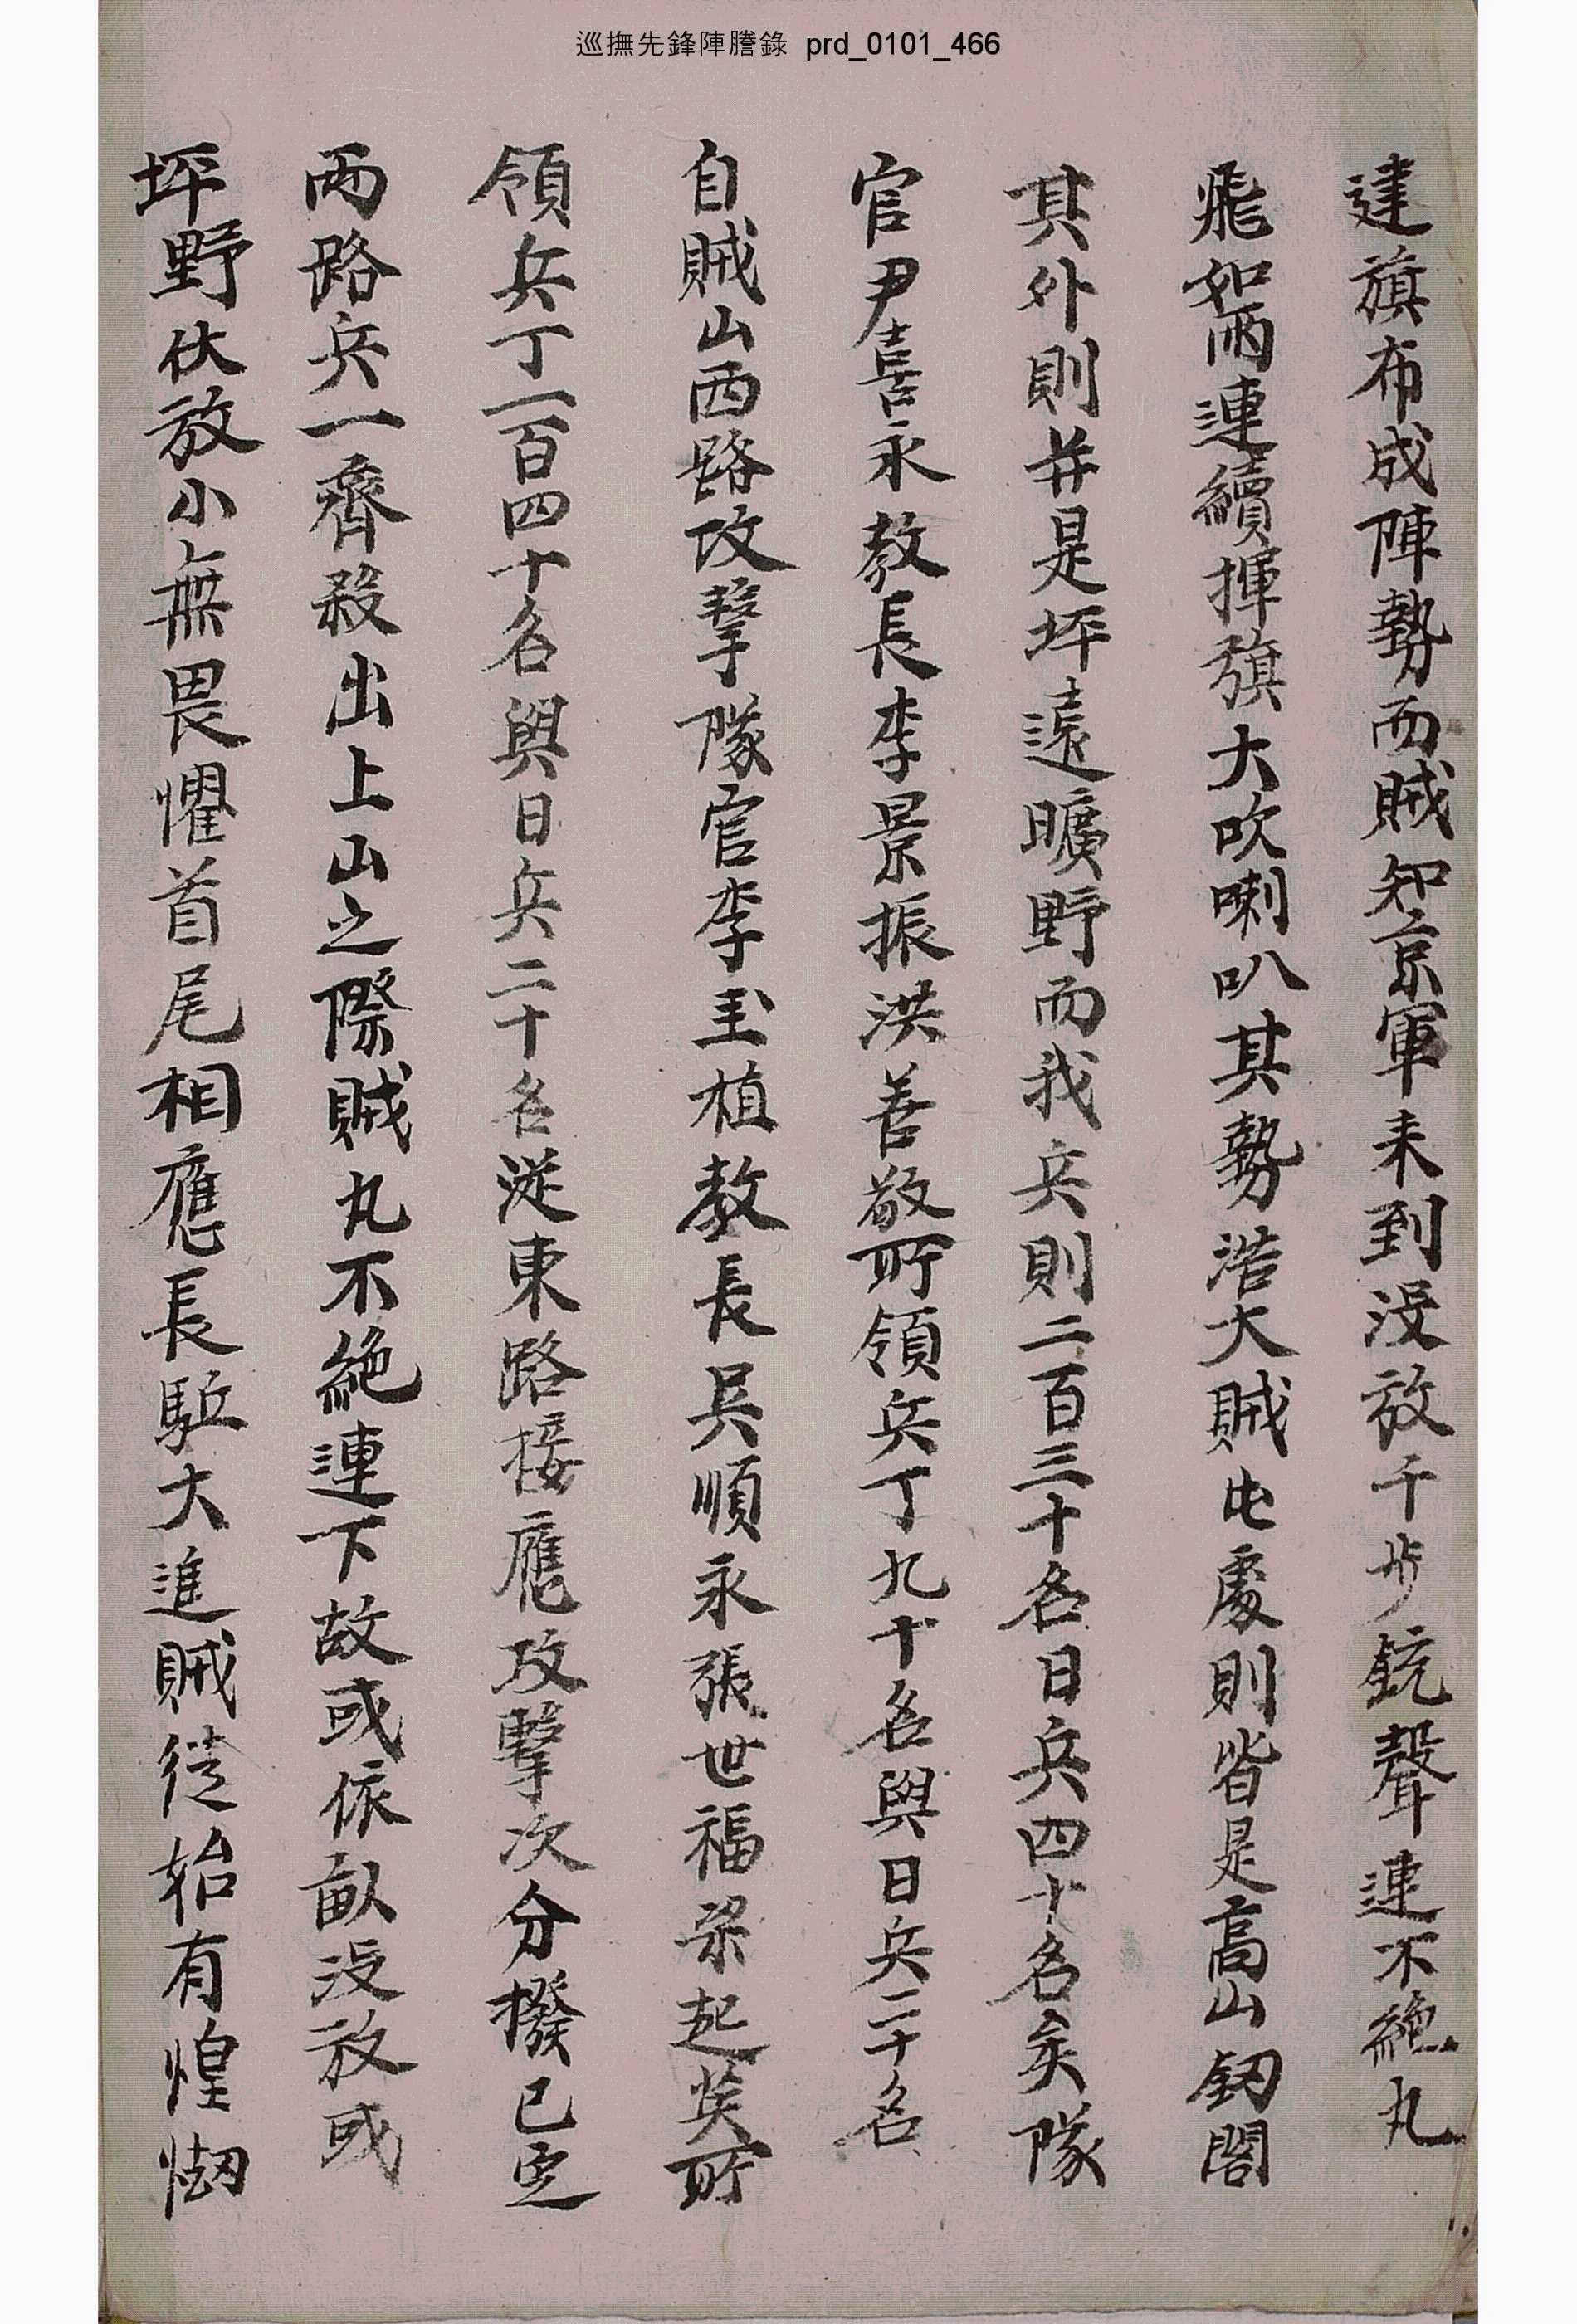 巡撫先鋒陣謄錄 prd_0101_466
建旗布成陣勢而賊知京軍来到没放千步銃聲連不絶丸
飛如雨連續揮旗大吹喇叭其勢浩大賊屯處則皆是高山釼閣
其外則并是坪遠曠野而我兵則二百三十名日兵四十名矣隊
官尹喜永教長李景振洪善敬所領兵丁九十名與日兵二十名
自賊山西路攻擊隊官李圭植教長吳順永張世福梁起英所
領兵丁一百四十名與日兵二十名従東路接應攻擊次分撥已定
兩路兵一齊殺出上山之際賊丸不絶連下故或依畒没放或
坪野伏放小無畏懼首尾相應長駈大進賊徒始有惶㤼